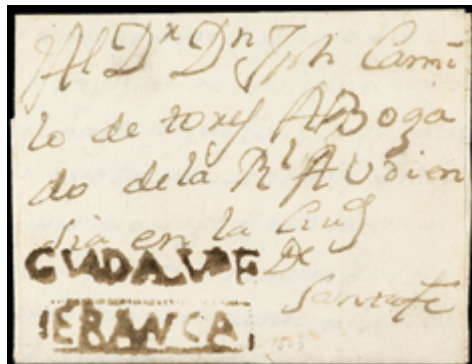 Al Dʳ Dⁿ Jph Cami
lo de torres ABoga
do de la Rˡ AUdien
sia en la Ciuᵈ
De
Santafe
FRANCA